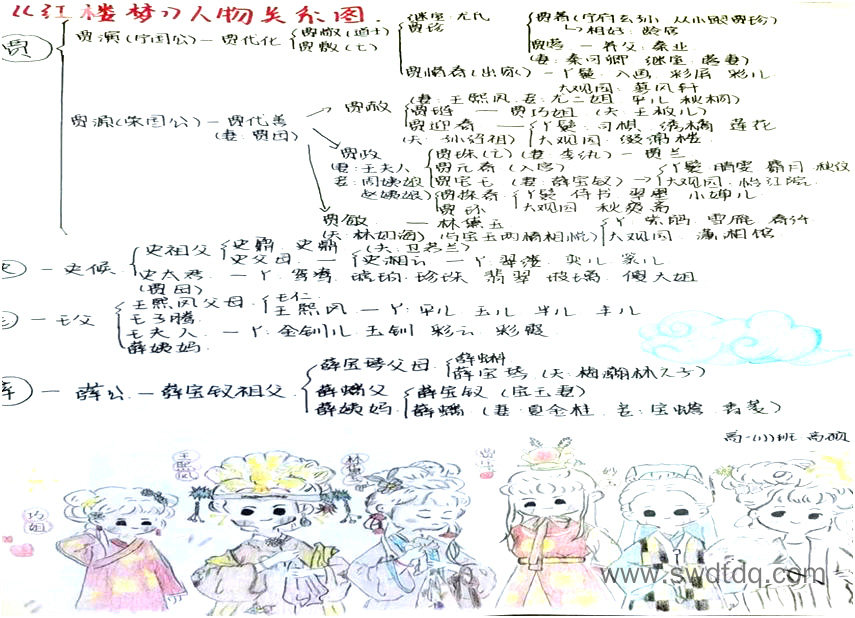 《红楼梦》人物关系图
贾
贾演(宁国公)—贾代化
贾敷(七)
继室:尤氏
贾珍
贾蓉
相好:龄官
养父:秦业
(妻:秦可卿 继室:
贾惜春(出家)—丫鬟:入画 彩屏 彩儿
大观园:蓼风轩
贾源(荣国公)—贾代善
(妻:贾母)
贾赦
(妻:王熙凤 妾:尤二姐 平儿 秋桐)
贾琏—贾巧姐(夫:王板儿)
贾迎春—丫鬟:司棋 绣橘 莲花
(夫:孙绍祖) 大观园:缀锦楼
贾政
妻:王夫人
妾:周姨娘
赵姨娘)
贾珠(亡)(妻:李纨)—贾兰
贾元春(入宫)
贾宝玉(妻:薛宝钗)
丫鬟:晴雯 麝月 秋纹
大观园:怡红院
贾探春 丫鬟:侍书 翠墨 小蝉儿
贾环 大观园 秋爽斋
贾敏—林黛玉
(夫:林如海)(与宝玉两情相悦)
丫:紫鹃 雪雁 春纤
大观园:潇湘馆
史候
史祖父 史鼐 史鼎 (夫:卫若兰)
史父母—史湘云—丫:翠缕
史太君—丫:鸳鸯 琥珀 珍珠 翡翠 玻璃 傻大姐
(贾母)
王父
王熙凤父母 王仁
王熙凤—丫:平儿 丰儿
王子腾
王夫人—丫:金钏儿 玉钏 彩云 彩霞
薛姨妈
薛公—薛宝钗祖父
薛宝琴父母 薛蝌
薛宝琴(夫:梅翰林之子)
薛蟠父 薛宝钗(宝玉妻)
薛姨妈 薛蟠(妻:夏金桂 妾:宝蟾 香菱)
高一(11)班 高硕
巧姐
王熙凤
林黛玉
www.swdtdq.com